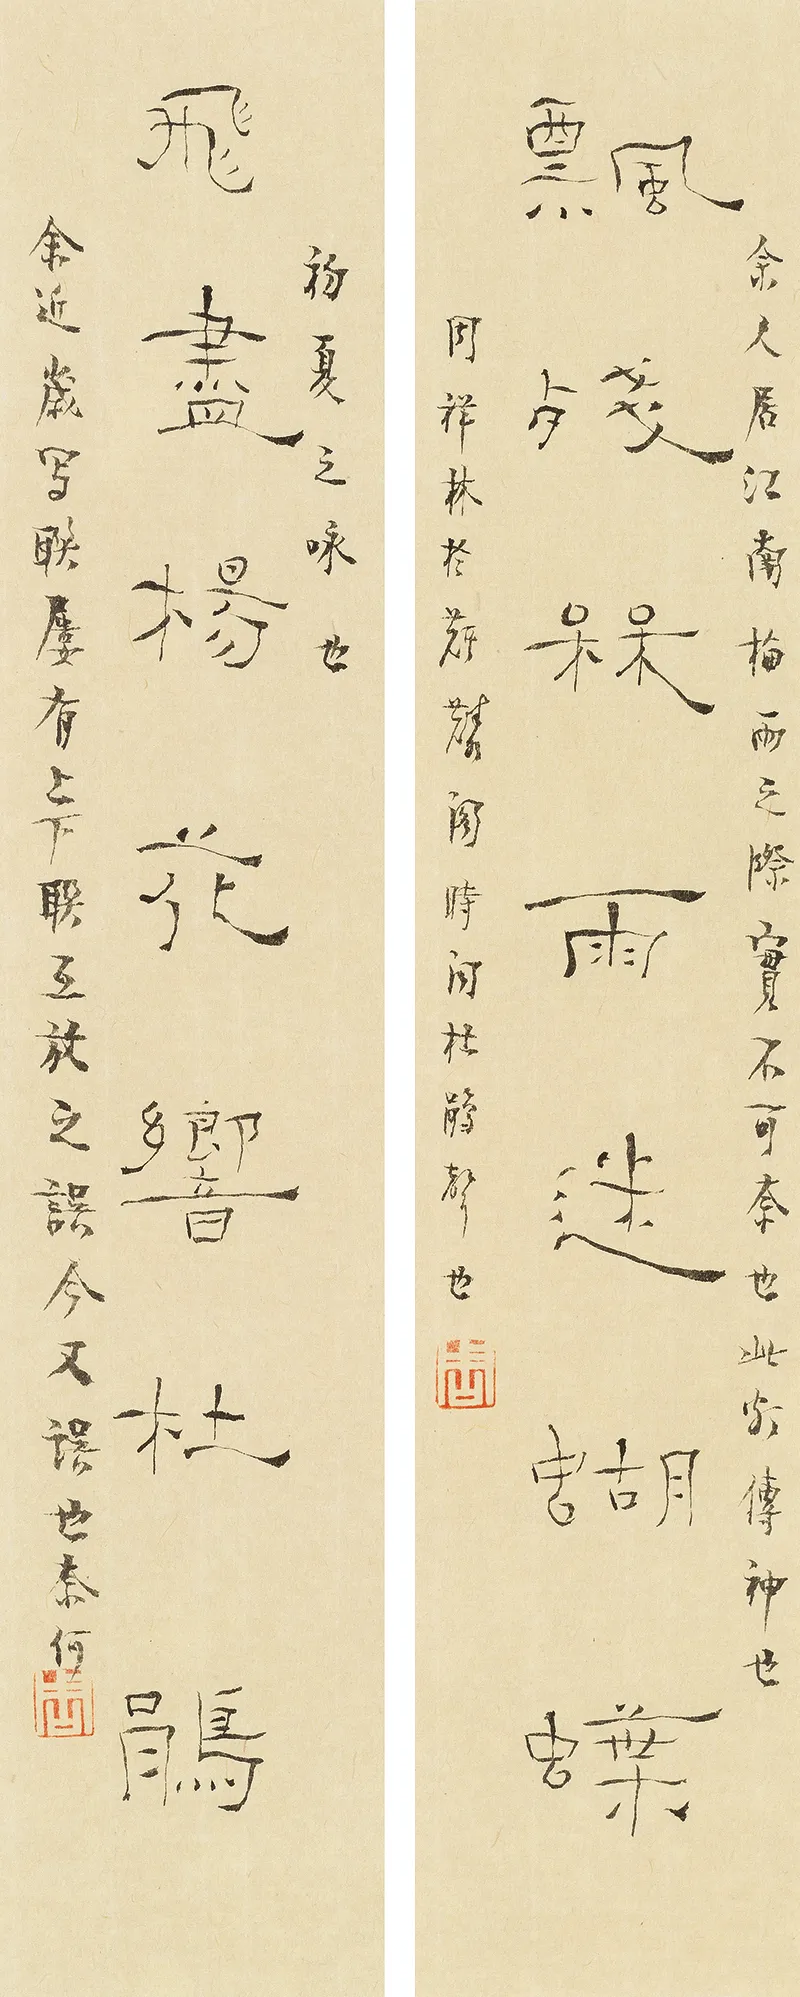 余久居江南梅雨之際實不可奈也此傳神也
飄殘槑雨迷蝴蝶
周祥林於閣時聞杜鵑聲也
初夏之咏也
飛盡楊花響杜鵑
余近歲写联屢有上下联互放之誤今又誤也奈何